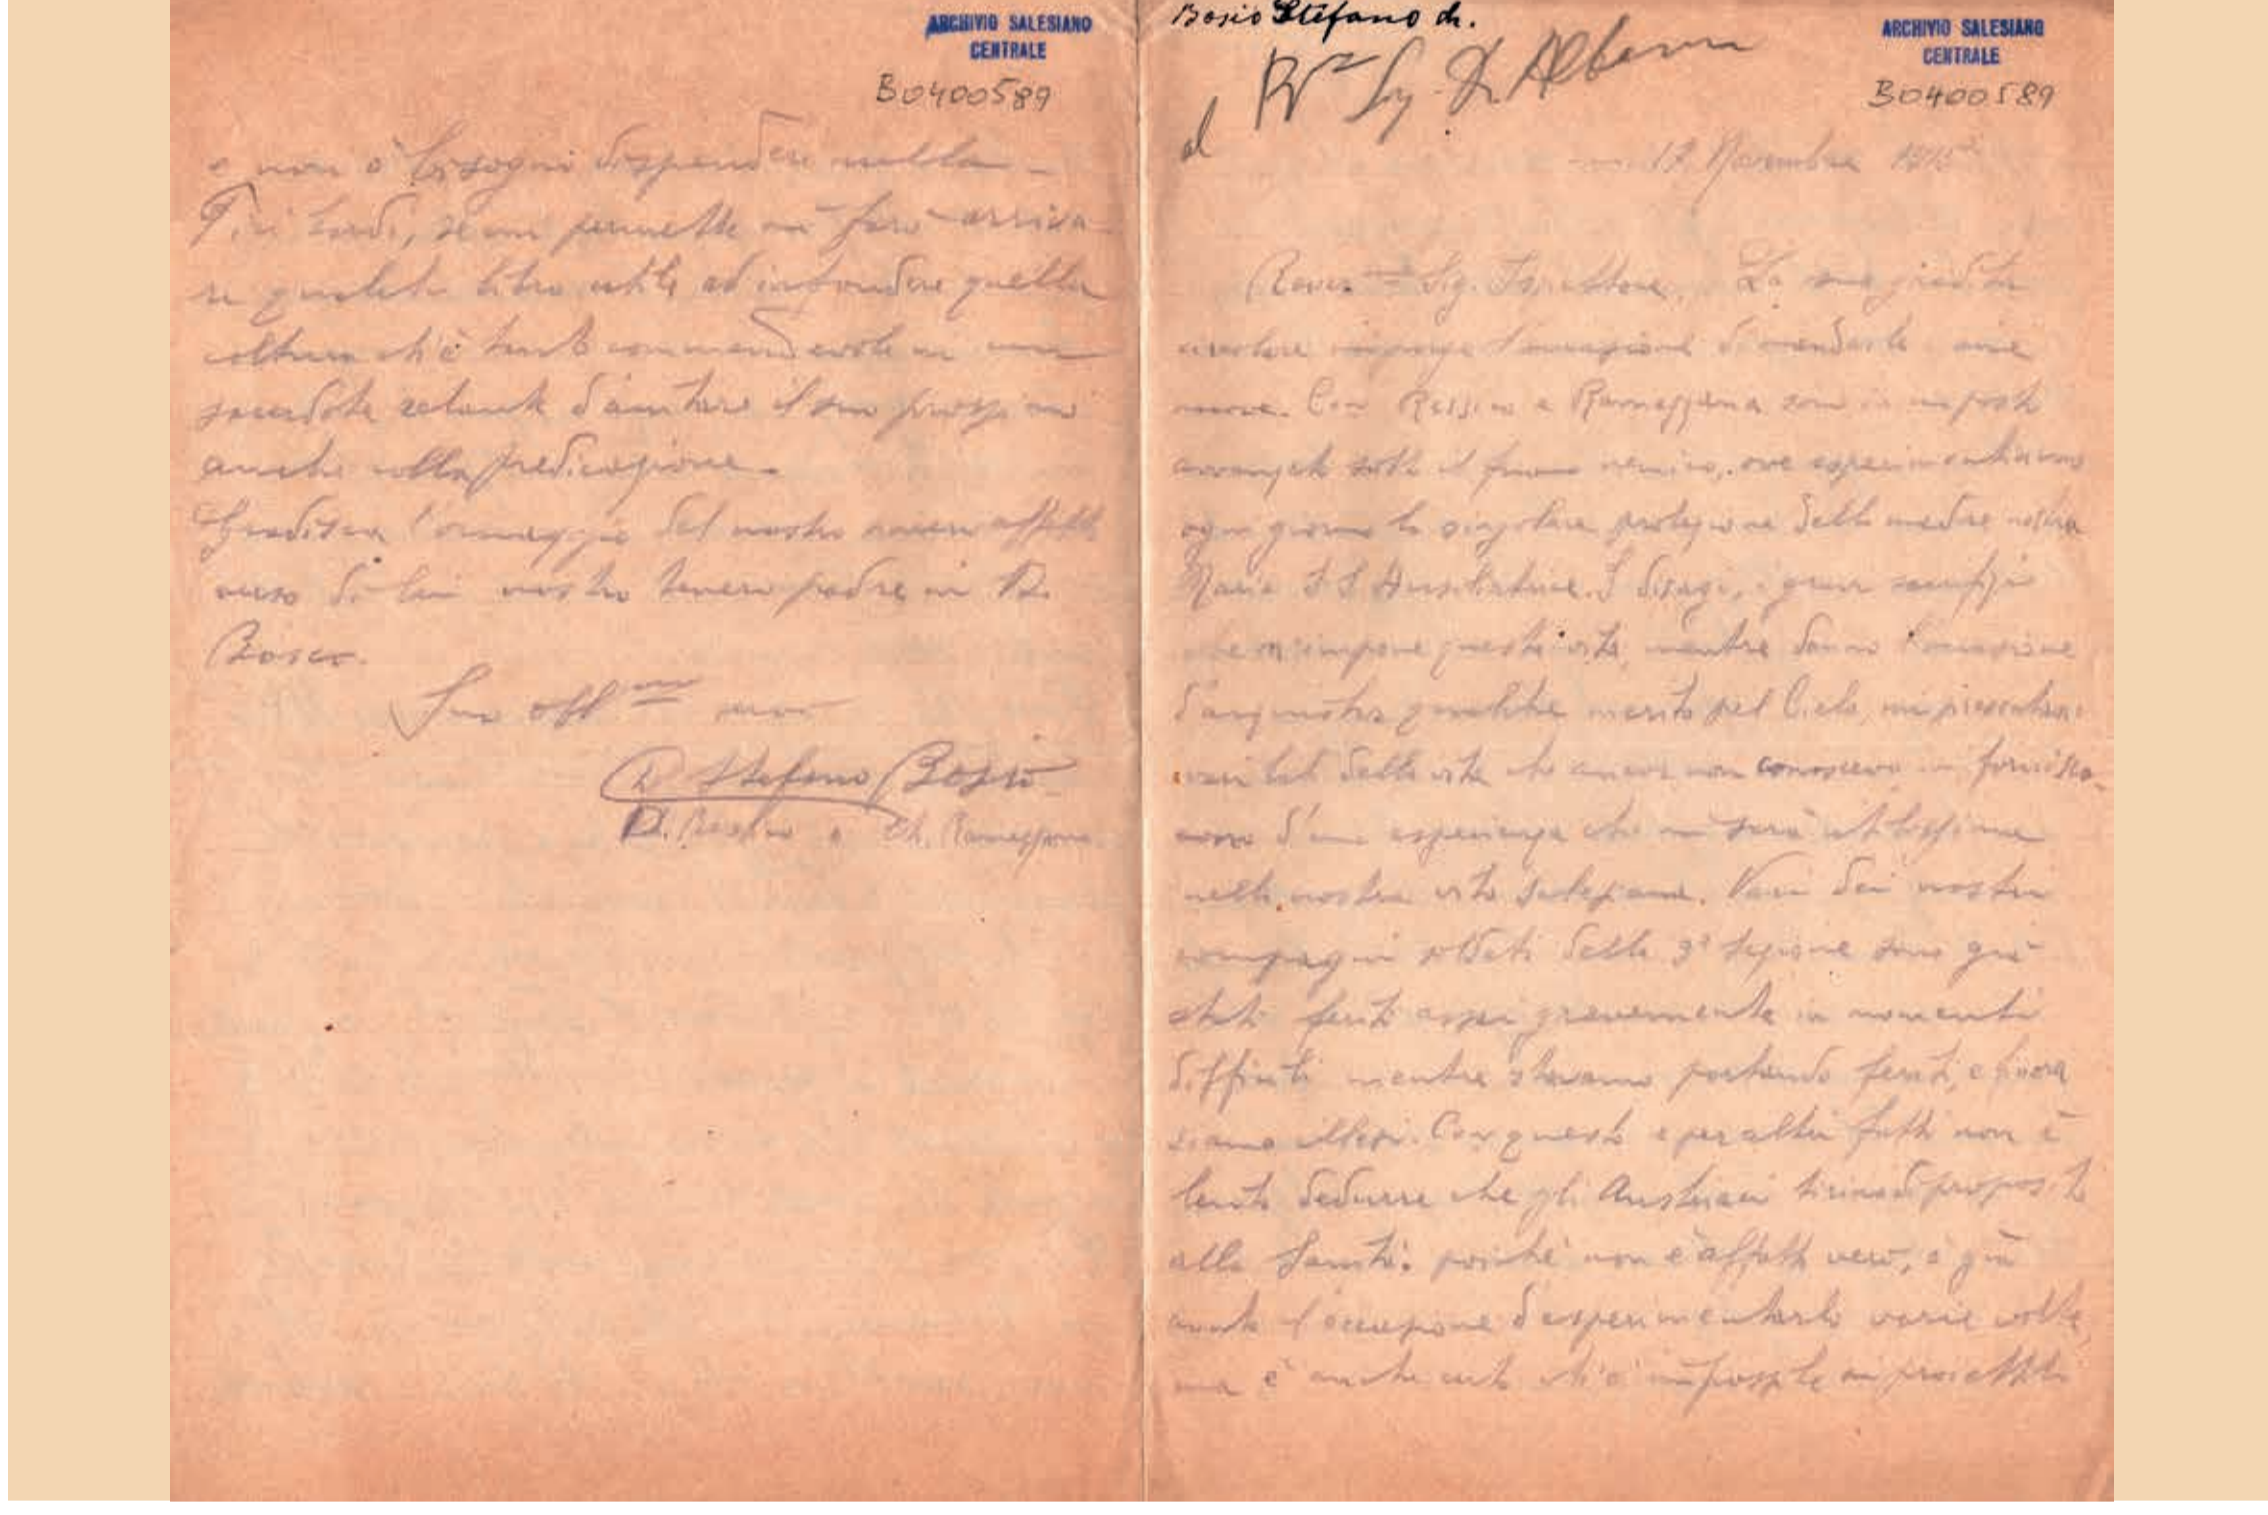 ARCHIVIO SALESIANO
CENTRALE
B0400589
e non ò bisogni di spendere nulla -
Più tardi, se mi permette mi farò arriva-
re qualche libro utile ad infondere quella
coltura ch'è tanto commendevole in un
sacerdote zelante d'aiutare il suo prossimo
anche colla predicazione.
Gradisca l'omaggio del nostro affetto
verso di Lei nostro tenero padre in D.
Bosco.
Suo aff.mo
D Stefano Bosio
D. e Ch. Ramezzana
Bosio Stefano ch.
ARCHIVIO SALESIANO
CENTRALE
al Sig. D. Albera
B0400589
17 Novembre 1915
Rever. Sig. Ispettore. La sua gradita
circolare l'occasione di mandarle mie
nuove. Con Ressico e Ramezzana sono in un posto
avanzato sotto il fuoco nemico, ove esperimentiamo
ogni giorno la singolare protezione della madre nostra
Maria S.S. Ausiliatrice. I disagi, i gravi sacrifizi
che c'impone questa vita, mentre danno l'occasione
d'acquistar qualche merito pel Cielo, mi presentano
vari lati della vita che ancor non conoscevo mi fornisco-
no d'un esperienza che mi sarà utilissima
nella nostra vita salesiana. Vari dei nostri
compagni soldati della 3ª sezione sono già
stati feriti assai gravemente in momenti
difficili mentre stavamo portando feriti, e finora
siamo illesi. Con questo e per altri fatti non è
lecito dedurre che gli Austriaci tirino di proposito
alla Sanità: poichè non è affatto vero, e già
avuto l'occasione d'esperimentarlo varie volte,
ma è anche certo ch'è impossibile ai proiettili